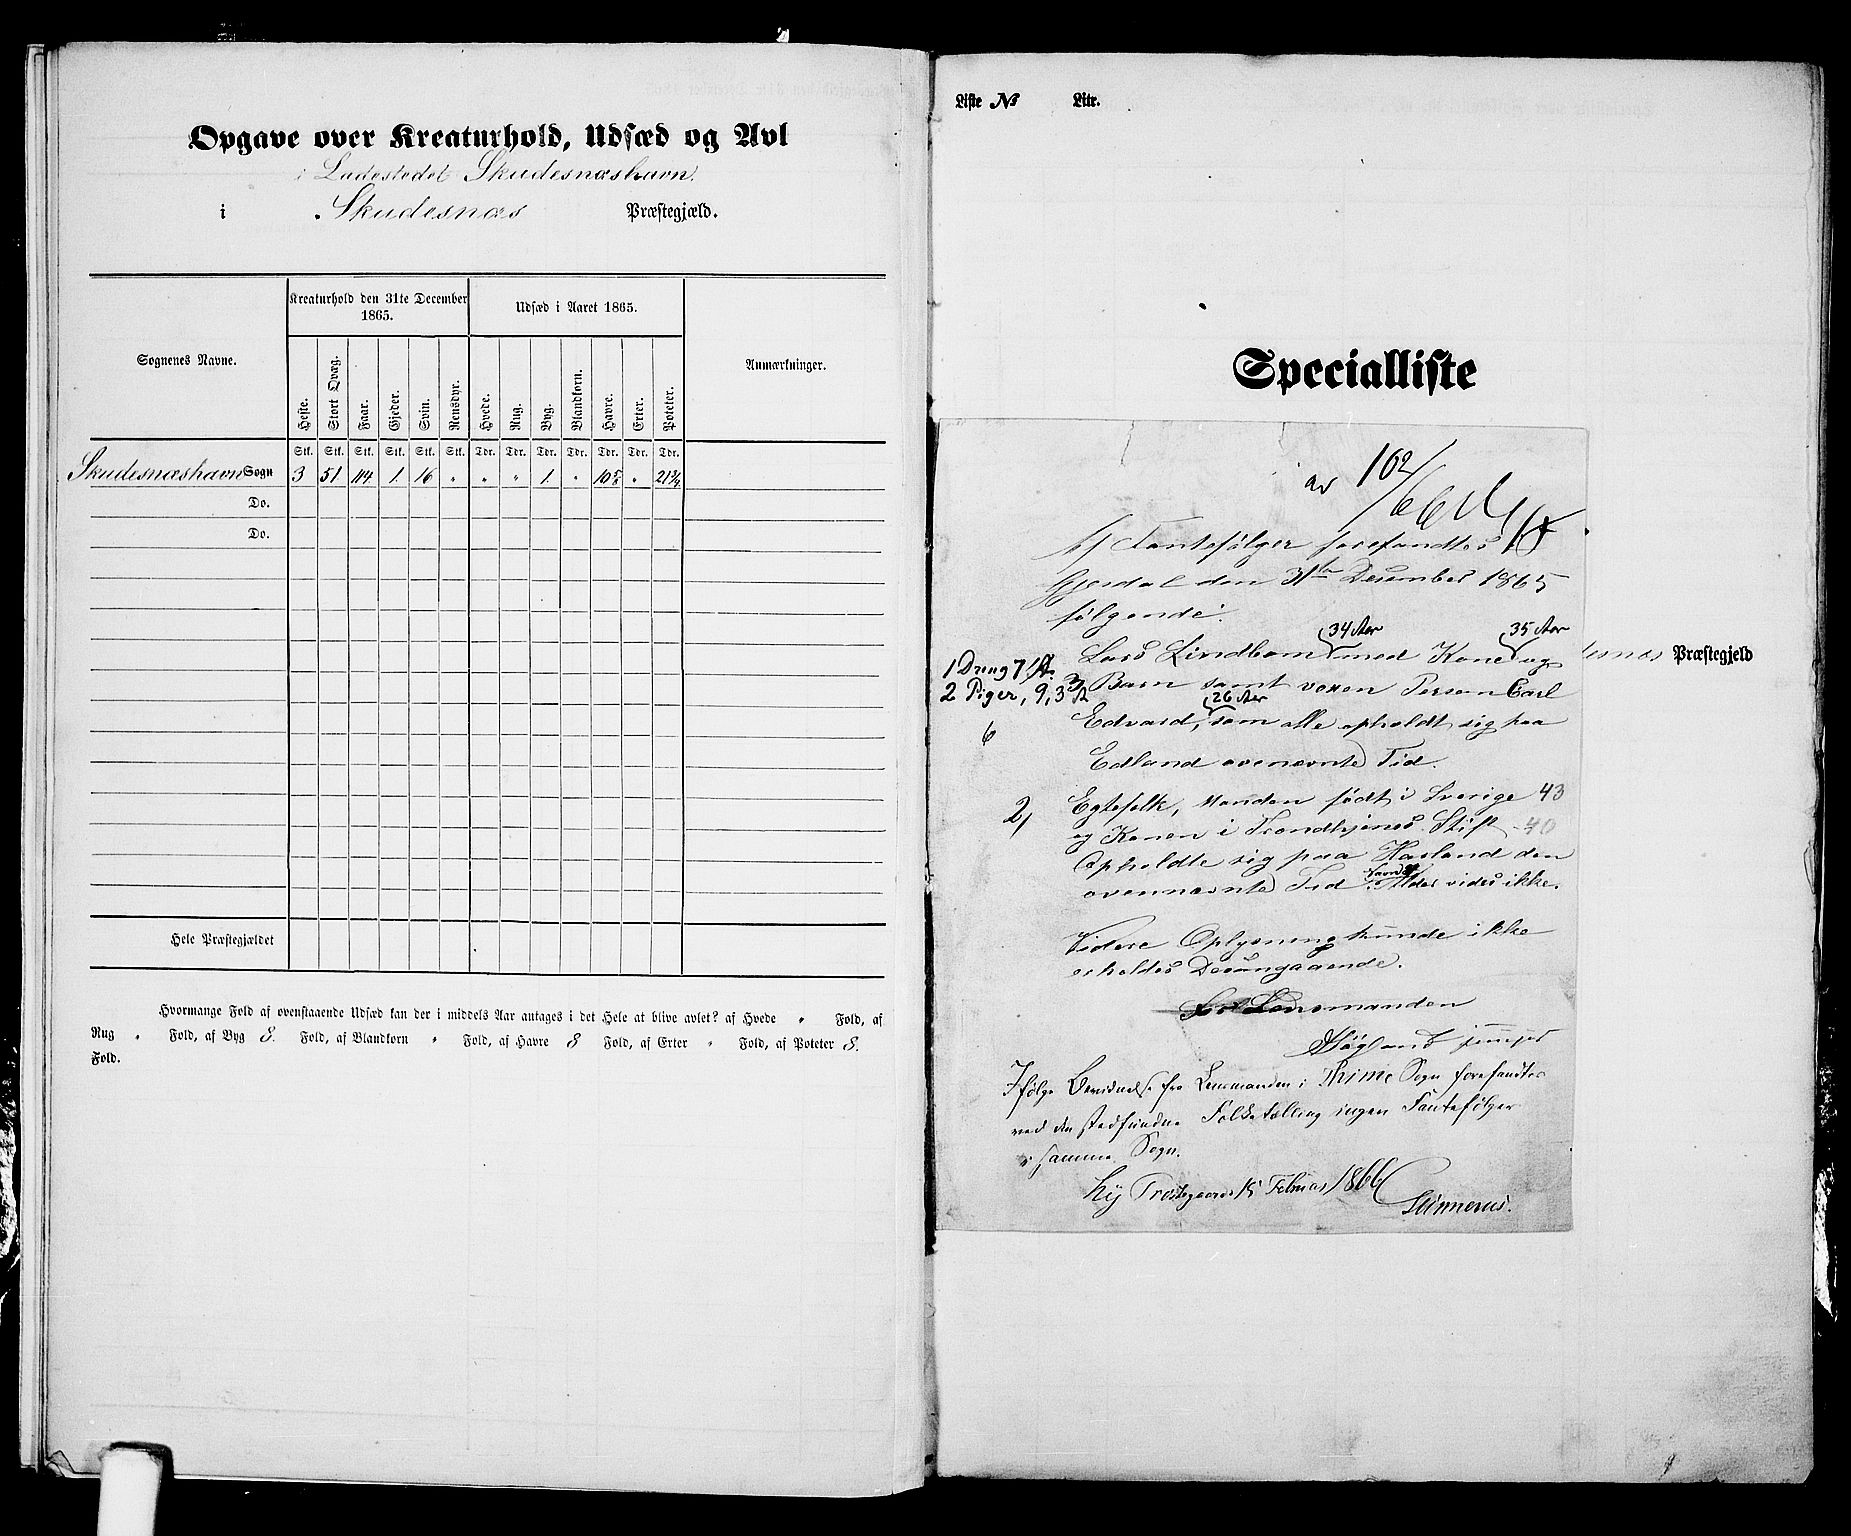 Opgave over Kreaturhold, Udsæd og Avl
i Ladestedet Skudesnæshavn.
i Skudesnæs Præstegjæld.
Sognenes Navne.
Kreaturhold den 31te December 1865.
Udsæd i Aaret 1865.
Anmærkninger.
Heste. Stort Qvæg. Faar. Gjeder. Svin. Rensdyr. Hvede. Rug. Byg. Blandkorn. Havre. Erter. Poteter.
Stk. Stk. Stk. Stk. Stk. Stk. Tdr. Tdr. Tdr. Tdr. Tdr. Tdr. Tdr.
Skudesnæshavn Sogn 3 51 114 1 16 " " " 1. " 10 " 21¾
Do.
Do.
Hele Præstegjældet
Hvormange Fold af ovenstaaende Udsæd kan der i middels Aar antages i det Hele at blive avlet? af Hvede " Fold, af
Rug " Fold, af Byg 8. Fold, af Blandkorn " Fold, af Havre 8 Fold, af Erter " Fold, af Poteter 8.
Fold.
Liste No Litr.
Specialliste
102/66
Af Fantefølger forefandtes i
Gjesdal den 31te Desember 1865
følgende:
34 Aar 35 Aar
Lars Lindbom med Kone og
1 Dreng 7 A
3 Børn samt voxen Person Carl
2 Piger, 9, 3 A
26 Aar
Edvard, som alle opholdt sig paa
6
Edland ovenævnte Tid.
2, Egtefolk, Manden født i Sverige 43
og Konen i Trondhjems Stift 40
Opholdte sig paa Hasland den
ovennævnte Tid. Navn og Alder vides ikke.
Videre Oplysning kunde ikke
erholdes Desangaaende.
For Lensmanden
Høgland junior
Ifølge Beretning fra Lensmanden i Thime Sogn forefandtes
ved den stedfundne Folketælling ingen Fantefølger
i samme Sogn.
Ly Præstegaard 15 Februar 1866
Gunnerus.
esnæs Præstegjeld